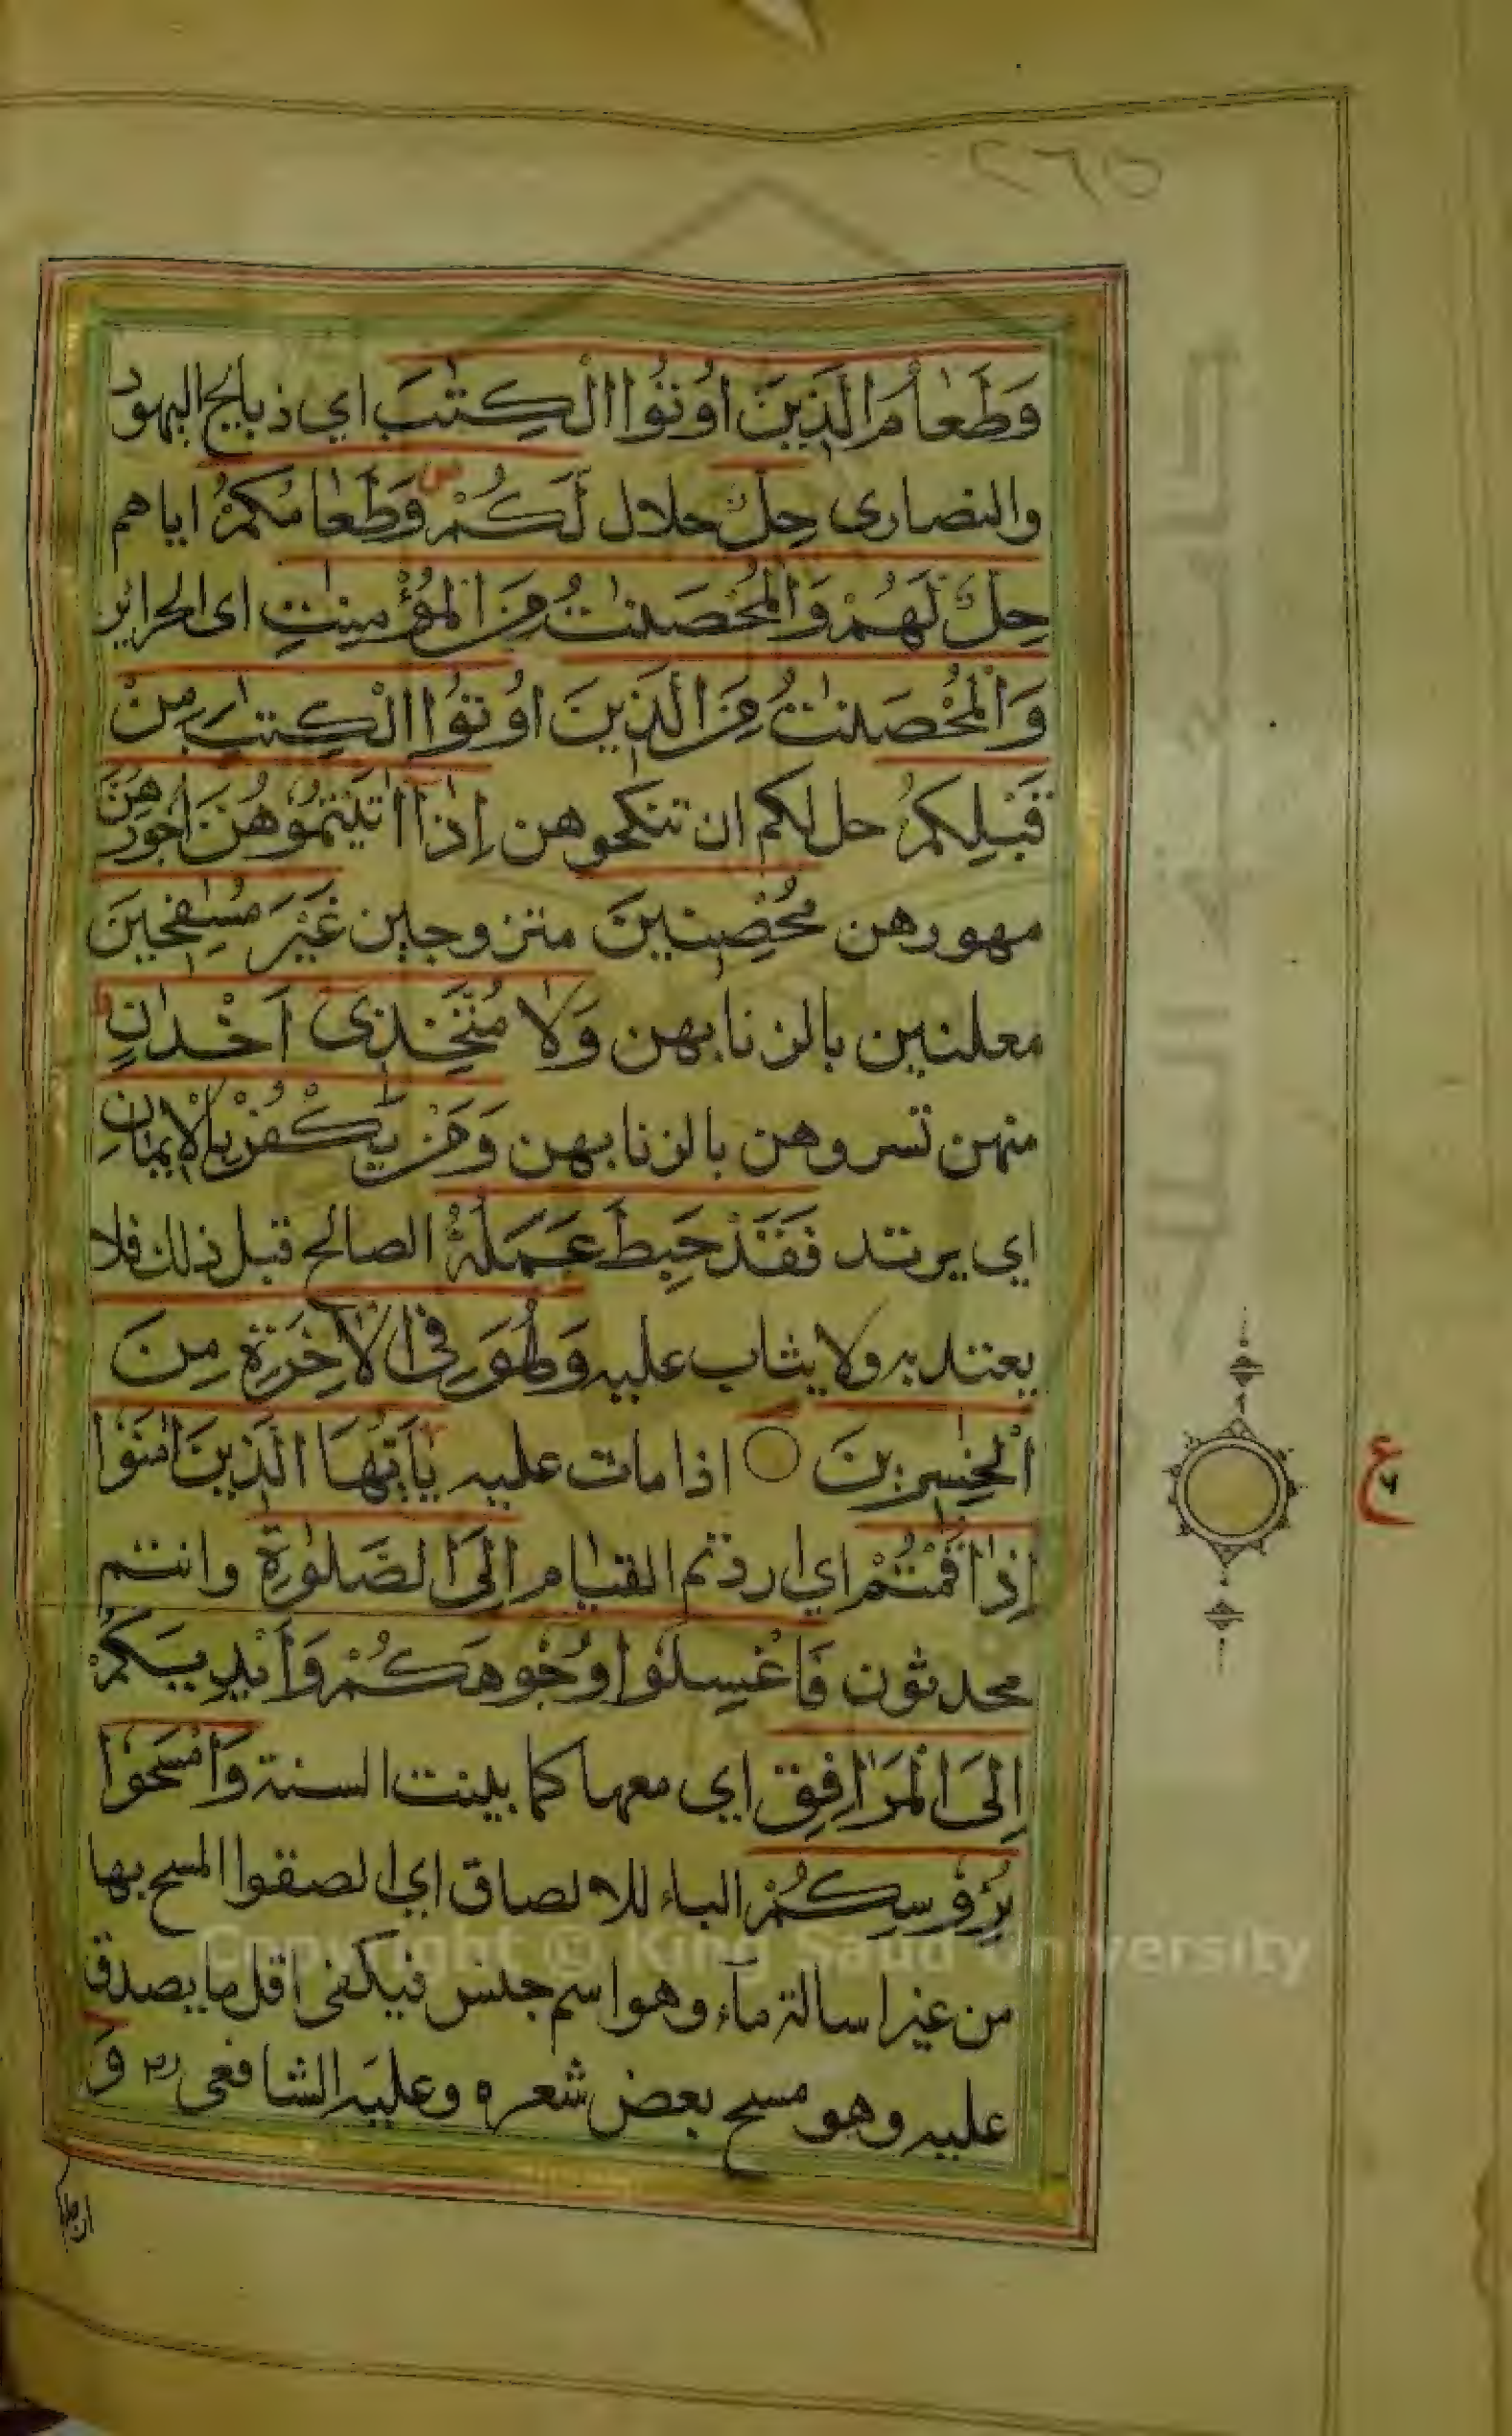 ٢٦٥
وَطَعَامُ الَّذِينَ أُوتُوا الْكِتٰبَ اي ذبايح اليهود
والنصارى حِلٌّ حلال لَّكُمْ وَطَعَامُكُمْ اياهم
حِلٌّ لَّهُمْ وَالْمُحْصَنٰتُ مِنَ الْمُؤْمِنٰتِ اى الحراير
وَالْمُحْصَنٰتُ مِنَ الَّذِينَ أُوتُوا الْكِتٰبَ مِنْ
قَبْلِكُمْ حل لكم ان تنكحوهن إِذَا اٰتَيْتُمُوهُنَّ أُجُورَهُنَّ
مهورهن مُحْصِنِينَ متزوجين غَيْرَ مُسٰفِحِينَ
معلنين بالزنا بهن وَلَا مُتَّخِذِىٓ أَخْدَانٍ
منهن تسروهن بالزنا بهن وَمَنْ يَّكْفُرْ بِالْإِيمَانِ
اي يرتد فَقَدْ حَبِطَ عَمَلُهُ الصالح قبل ذلك فلا
يعتد به ولا يثاب عليه وَهُوَ فِى الْاٰخِرَةِ مِنَ
الْخٰسِرِينَ ○ اذا مات عليه يٰٓأَيُّهَا الَّذِينَ اٰمَنُوْا
إِذَا قُمْتُمْ اي اردتم القيام إِلَى الصَّلٰوةِ وانتم
محدثون فَاغْسِلُوا وُجُوهَكُمْ وَأَيْدِيَكُمْ
إِلَى الْمَرَافِقِ اي معها كما بينت السنة وَامْسَحُوْا
بِرُءُوسِكُمْ الباء للالصاق اي الصقوا المسح بها
من غير اسالة ماء وهو اسم جنس فيكفى اقل ما يصدق
عليه وهو مسح بعض شعره وعليه الشافعى رح وَ
ع
٦
Copyright © King Saud University